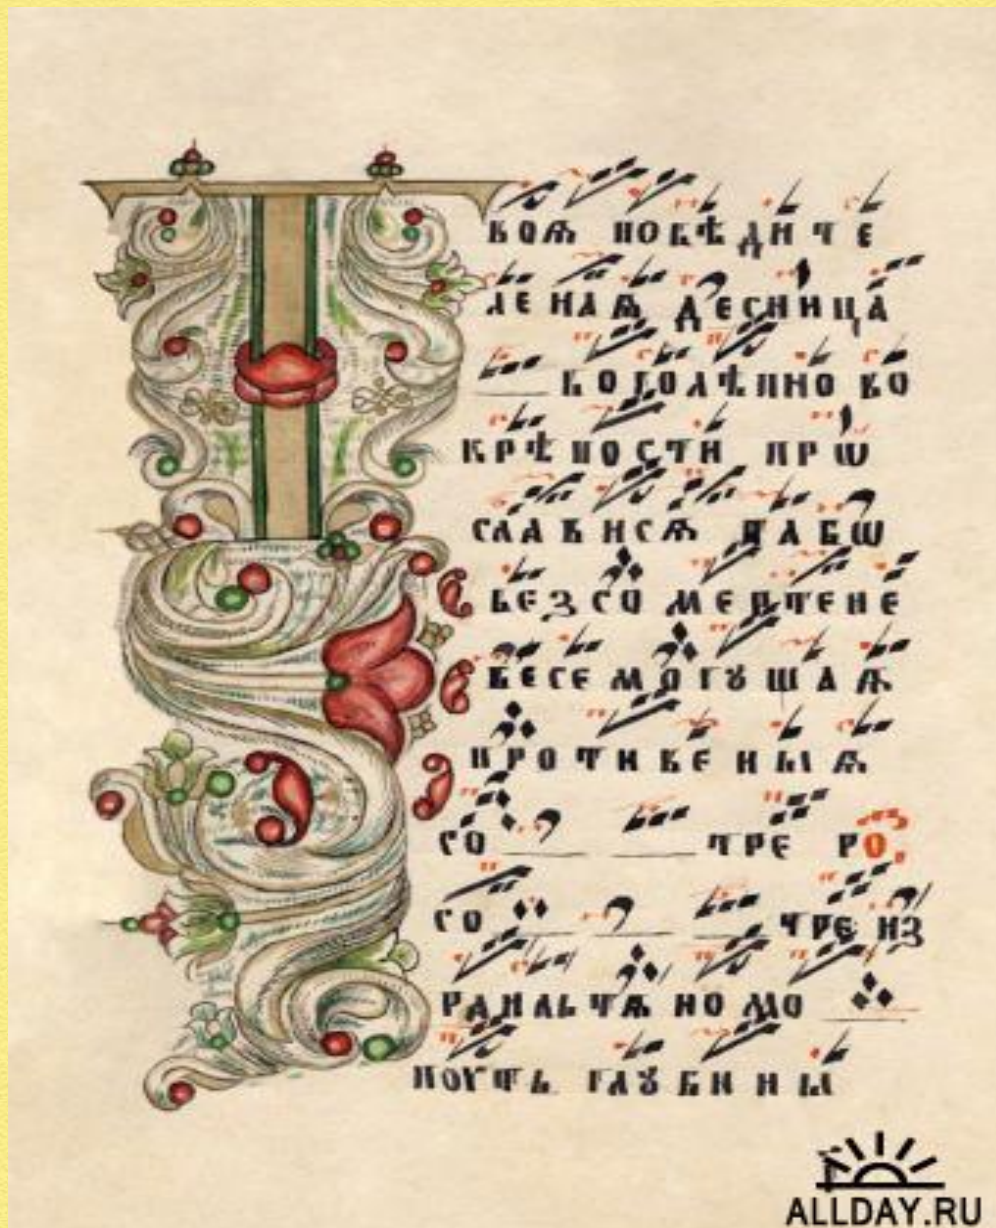 Т
ВОѦ ПОБѢДИТЕ
ЛЕНАѦ ДЕСНИЦА
БОГОЛѢПНО ВО
КРѢПОСТИ ПРѠ
СЛАВИСѦ
БЕЗСО МЕРТЕНЕ
ВЕСЕМОГУЩАѦ
ПРОТИВЕНЫѦ
СО ТРЕ РО.
СО ТРЕ ИЗ
РАИЛЬТѦНОМО
ПОУТЬ ГЛУБИНЫ
ALLDAY.RU